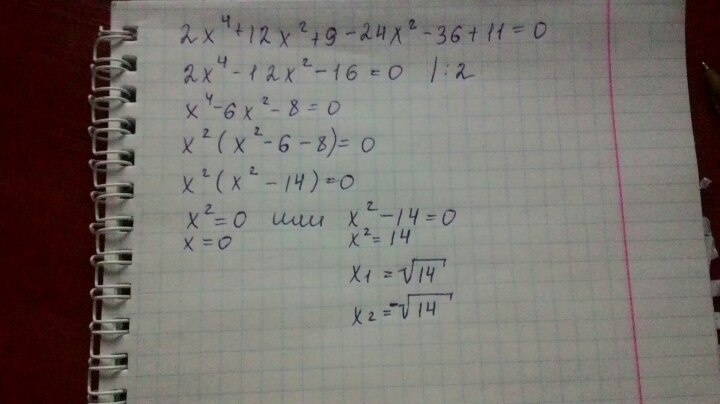 2x⁴+12x²+9-24x²-36+11=0
2x⁴-12x²-16=0 |:2
x⁴-6x²-8=0
x²(x²-6-8)=0
x²(x²-14)=0
x²=0 или x²-14=0
x=0 x²=14
x1=√14
x2=-√14